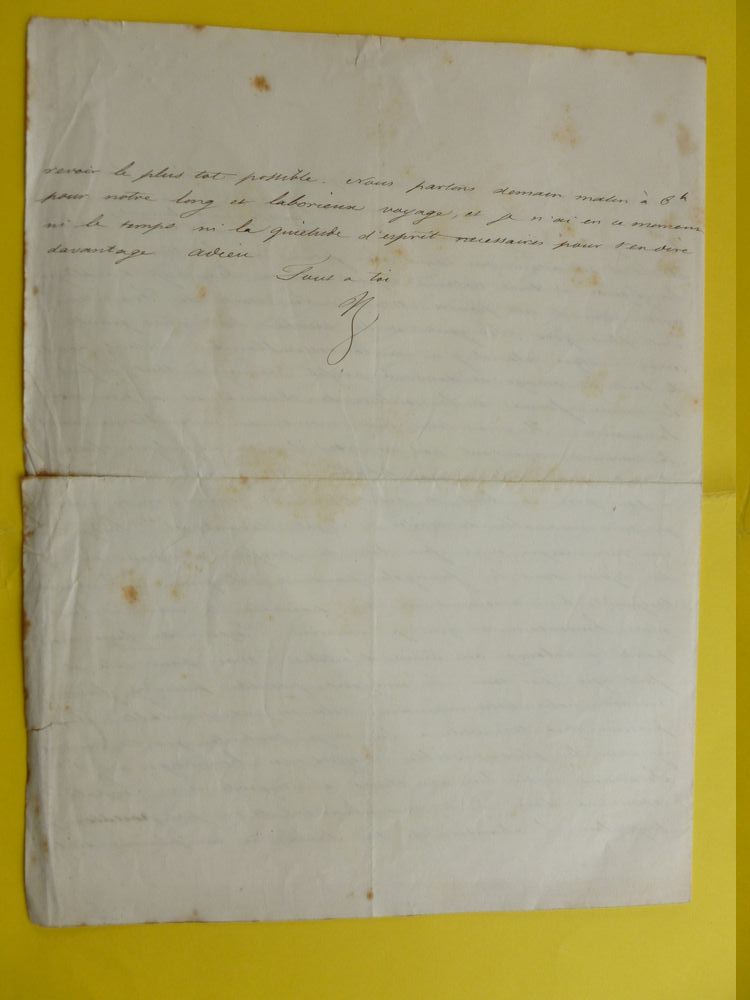 revoir le plus tot possible. Nous partons demain matin à 6h
pour notre long et laborieux voyage, et je n'ai en ce moment
ni le temps ni la quietude d'esprit necessaires pour t'en dire
davantage adieu
Tout a toi
N